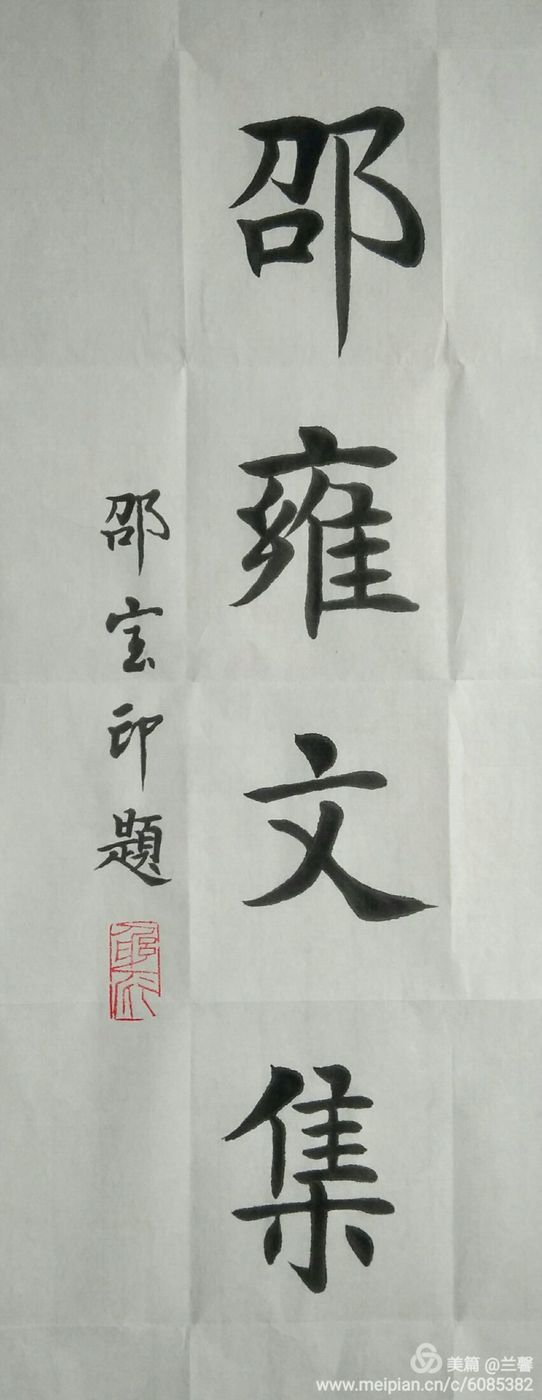 邵雍文集
邵宝印题
美篇 @兰馨
www.meipian.cn/c/6085382